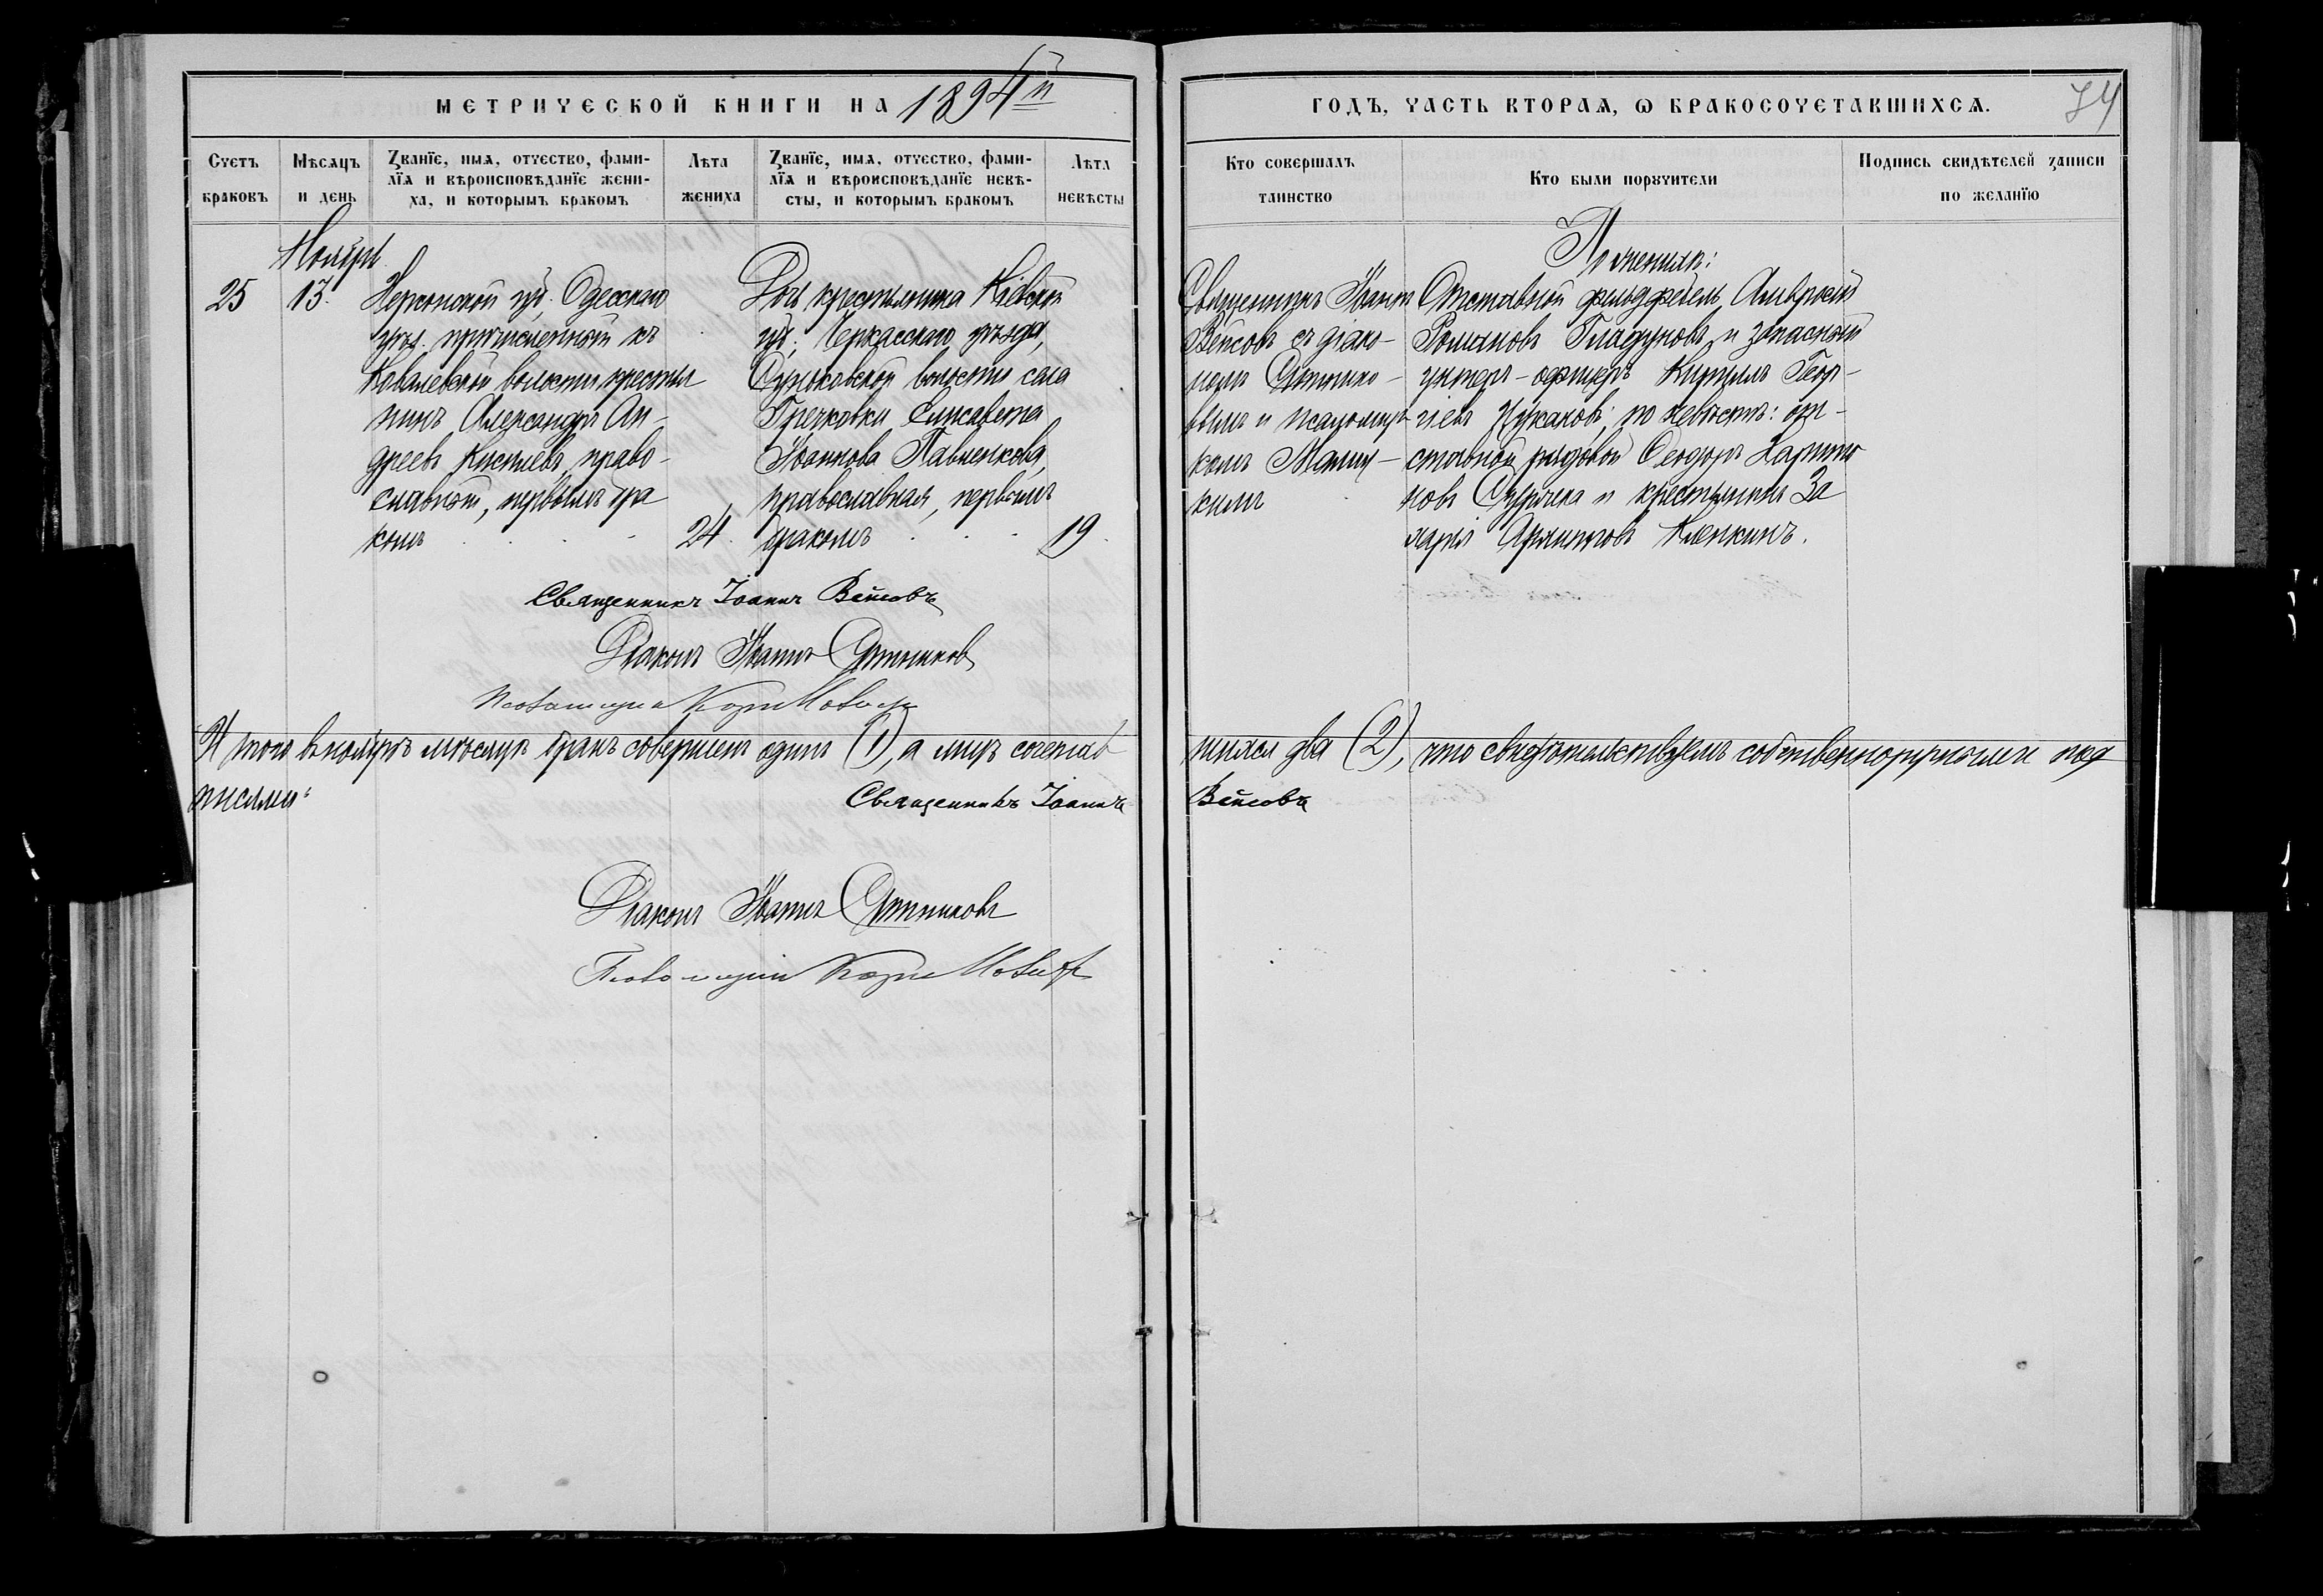 МЕТРИЧЕСКОЙ КНИГИ НА 1894й
ГОДЪ, ЧАСТЬ ВТОРАЯ, Ѡ БРАКОСОЧЕТАВШИХСЯ.
74
Счетъ браковъ
Мѣсяцъ и день
Званїе, имя, отчество, фами-
лїя и вѣроисповѣданїе жени-
ха, и которымъ бракомъ
Лѣта жениха
Званїе, имя, отчество, фами-
лїя и вѣроисповѣданїе невѣ-
сты, и которымъ бракомъ
Лѣта невѣсты
Кто совершалъ таинство
Кто были порꙋчители
Подпись свидѣтелей записи по желанїю
Ноябрь
25
13.
Херсонской губ. Одесскаго
уѣз. причисленный къ
Ковалевской волости крестья
нинъ Александръ Ан-
дреевъ Киселевъ, право-
славный, первымъ бра
комъ
24.
Дочь крестьянина Кіевской
губ., Черкасскаго уѣзда,
волости села
Гречковки Елисавета
Іоаннова Павленкова,
православная, первымъ
бракомъ
19
Священникъ Іоаннъ
Вейсовъ съ діако-
номъ
вымъ и псаломщи-
комъ
кимъ
По женихѣ:
Отставной фельдфебель Амвросій
Романовъ Гладуновъ и запасный
унтеръ-офицеръ Кириллъ Геор-
гіевъ по невѣстѣ: от-
ставной рядовой Ѳеодоръ Харито
новъ и крестьянинъ За
харій
Священникъ Іоаннъ Вейсовъ
Діаконъ Іоаннъ
И того въ ноябрѣ мѣсяцѣ бракъ совершенъ одинъ (1), а лицъ сочетав
шихся два (2), что свидѣтельствуемъ собственноручными под
писями:
Священникъ Іоаннъ
Вейсовъ
Діаконъ Іоаннъ